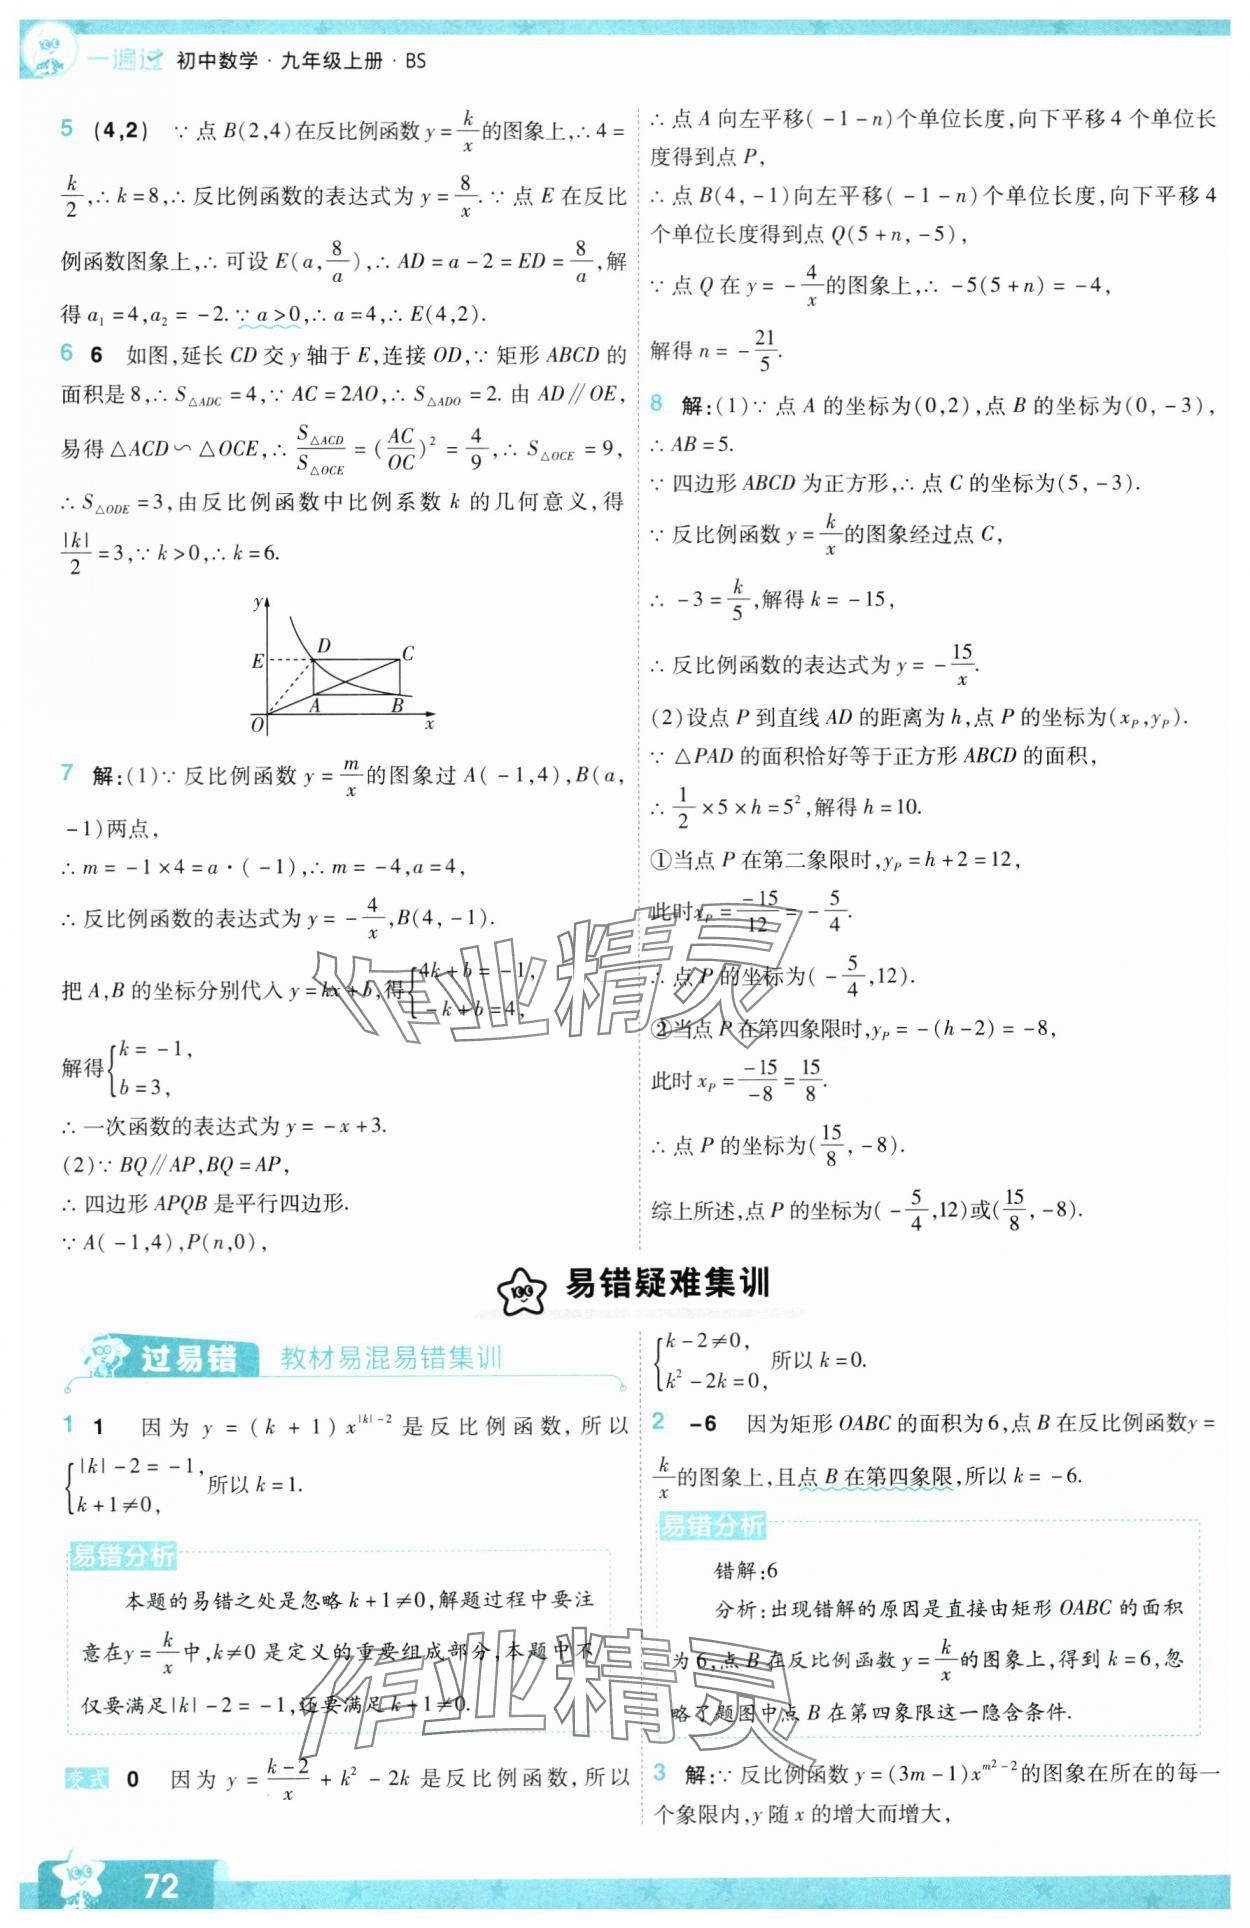 一遍过 初中数学·九年级上册·BS
5 (4,2) ∵ 点 B(2,4)在反比例函数 y = k/x 的图象上,∴ 4 =
k/2,∴ k = 8,∴ 反比例函数的表达式为 y = 8/x. ∵ 点 E 在反比
例函数图象上,∴ 可设 E(a, 8/a),∴ AD = a - 2 = ED = 8/a,解
得 a₁ = 4,a₂ = -2. ∵ a > 0,∴ a = 4,∴ E(4,2).
6 6 如图,延长 CD 交 y 轴于 E,连接 OD,∵ 矩形 ABCD 的
面积是 8,∴ S△ADC = 4,∵ AC = 2AO,∴ S△ADO = 2. 由 AD∥OE,
易得 △ACD ∽ △OCE,∴ S△ACD/S△OCE = (AC/OC)² = 4/9,∴ S△OCE = 9,
∴ S△ODE = 3,由反比例函数中比例系数 k 的几何意义,得
|k|/2 = 3,∵ k > 0,∴ k = 6.
y
E D C
A B
O x
7 解:(1)∵ 反比例函数 y = m/x 的图象过 A( -1,4),B(a,
-1)两点,
∴ m = -1 × 4 = a·( -1),∴ m = -4,a = 4,
∴ 反比例函数的表达式为 y = - 4/x,B(4, -1).
把 A,B 的坐标分别代入 y = kx + b,得{4k + b = -1,
-k + b = 4,
解得{k = -1,
b = 3,
∴ 一次函数的表达式为 y = -x + 3.
(2)∵ BQ∥AP,BQ = AP,
∴ 四边形 APQB 是平行四边形.
∵ A( -1,4),P(n,0),
∴ 点 A 向左平移( -1 - n)个单位长度,向下平移 4 个单位长
度得到点 P,
∴ 点 B(4, -1)向左平移( -1 - n)个单位长度,向下平移 4
个单位长度得到点 Q(5 + n, -5),
∵ 点 Q 在 y = - 4/x 的图象上,∴ -5(5 + n) = -4,
解得 n = - 21/5.
8 解:(1)∵ 点 A 的坐标为(0,2),点 B 的坐标为(0, -3),
∴ AB = 5.
∵ 四边形 ABCD 为正方形,∴ 点 C 的坐标为(5, -3).
∵ 反比例函数 y = k/x 的图象经过点 C,
∴ -3 = k/5,解得 k = -15,
∴ 反比例函数的表达式为 y = - 15/x.
(2)设点 P 到直线 AD 的距离为 h,点 P 的坐标为(xP,yP).
∵ △PAD 的面积恰好等于正方形 ABCD 的面积,
∴ 1/2 × 5 × h = 5²,解得 h = 10.
①当点 P 在第二象限时,yP = h + 2 = 12,
此时 xP = -15/12 = - 5/4.
∴ 点 P 的坐标为( - 5/4,12).
②当点 P 在第四象限时,yP = -(h - 2) = -8,
此时 xP = -15/-8 = 15/8.
∴ 点 P 的坐标为(15/8, -8).
综上所述,点 P 的坐标为( - 5/4,12)或(15/8, -8).
易错疑难集训
过易错 教材易混易错集训
1 1 因为 y = (k + 1)x^(|k| - 2) 是反比例函数,所以
{|k| - 2 = -1,
k + 1 ≠ 0,
所以 k = 1.
易错分析
本题的易错之处是忽略 k + 1 ≠ 0,解题过程中要注
意在 y = k/x 中,k ≠ 0 是定义的重要组成部分,本题中不
仅要满足 |k| - 2 = -1,还要满足 k + 1 ≠ 0.
变式 0 因为 y = (k - 2)/x + k² - 2k 是反比例函数,所以
{k - 2 ≠ 0,
k² - 2k = 0,
所以 k = 0.
2 -6 因为矩形 OABC 的面积为 6,点 B 在反比例函数 y =
k/x 的图象上,且点 B 在第四象限,所以 k = -6.
易错分析
错解:6
分析:出现错解的原因是直接由矩形 OABC 的面积
为 6,点 B 在反比例函数 y = k/x 的图象上,得到 k = 6,忽
略了题图中点 B 在第四象限这一隐含条件.
3 解:∵ 反比例函数 y = (3m - 1)x^(m² - 2) 的图象在所在的每一
个象限内,y 随 x 的增大而增大,
72
作业精灵
作业精灵